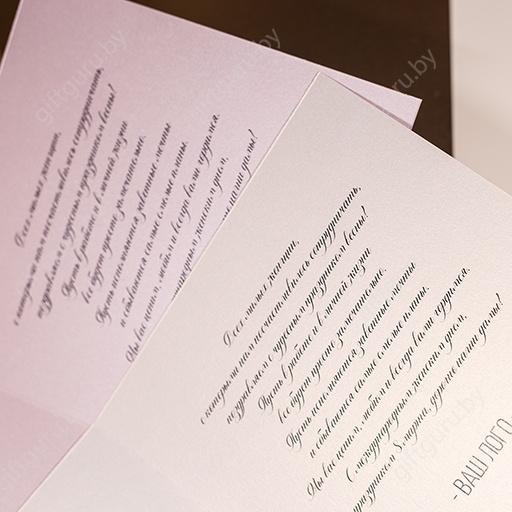 Всех милых женщин,
с которыми нам посчастливилось сотрудничать,
поздравляем с чудесным праздником весны!
Пусть в работе и в личной жизни
все будет просто замечательно.
Пусть исполняются заветные мечты
и сбываются самые смелые планы.
Мы вас ценим, любим и всегда вами гордимся.
Всех милых женщин,
с которыми нам посчастливилось сотрудничать,
поздравляем с чудесным праздником весны!
Пусть в работе и в личной жизни
все будет просто замечательно.
Пусть исполняются заветные мечты
и сбываются самые смелые планы.
Мы вас ценим, любим и всегда вами гордимся.
С международным женским днем,
праздником 8 марта, дорогие наши дамы!
- ВАШ ЛОГО
giftguru.by